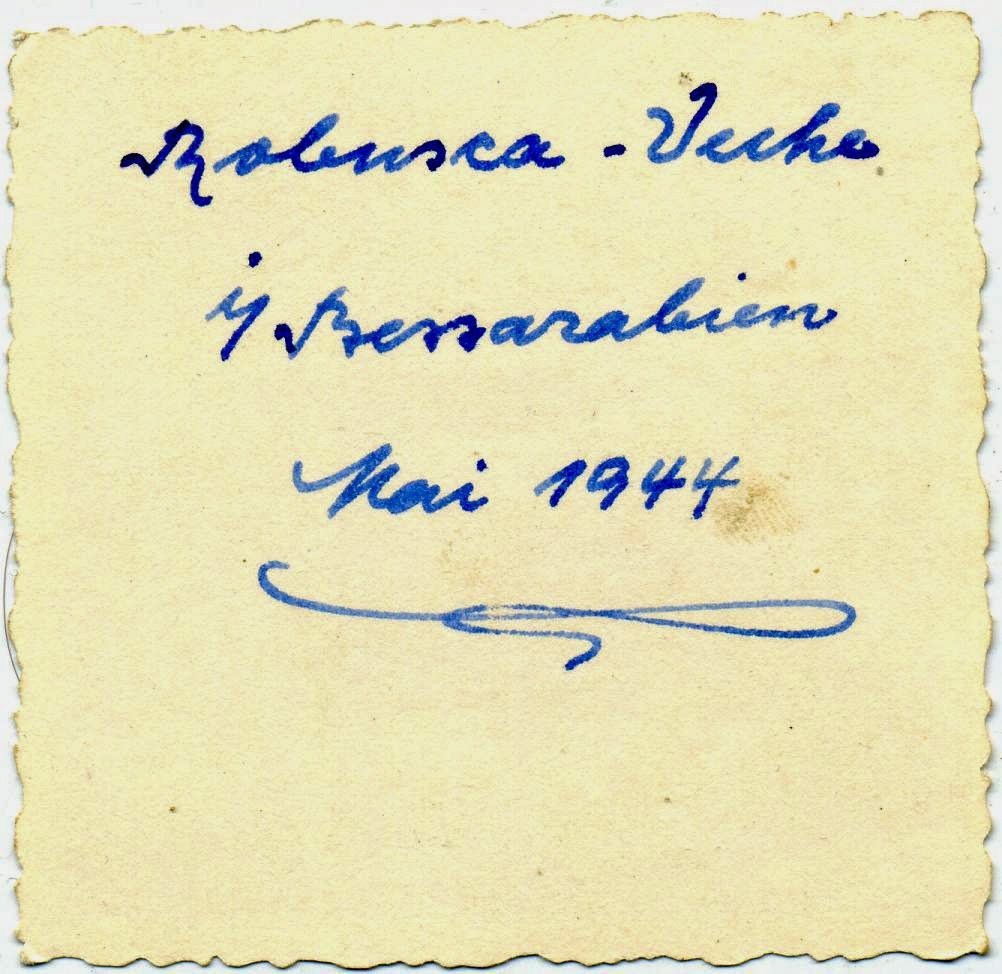 Robusca - Veche
i/ Bessarabien
Mai 1944